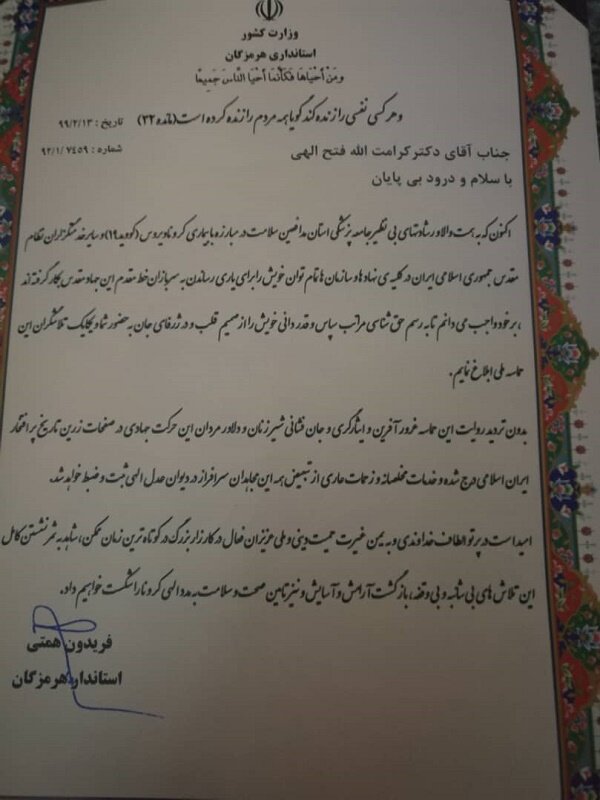 وزارت کشور
استانداری هرمزگان
وَمَنْ أَحْيَاهَا فَكَأَنَّمَا أَحْيَا النَّاسَ جَمِيعًا
و هر کسی نفسی را زنده کند گویا همه مردم را زنده کرده است (مائده ۳۲)
تاریخ : ۹۹/۲/۱۳
شماره : ۹۲/۱/۷۴۵۹
جناب آقای دکتر کرامت الله فتح الهی
با سلام و درود بی پایان
اکنون که به همت والا و رشادتهای بی نظیر جامعه پزشکی استان مدافعین سلامت در مبارزه با بیماری کرونا ویروس (کووید۱۹) و سایر خدمتگزاران نظام
مقدس جمهوری اسلامی ایران در کلیه ی نهادها و سازمان ها تمام توان خویش را برای یاری رساندن به سربازان خط مقدم این جهاد مقدس بکار گرفته اند
، بر خود واجب می دانم تا به رسم حق شناسی مراتب سپاس و قدردانی خویش را از صمیم قلب و در ژرفای جان به حضور شما و یکایک تلاشگران این
حماسه ملی ابلاغ نمایم.
بدون تردید روایت این حماسه غرور آفرین و ایثارگری و جان فشانی شیرزنان و دلاور مردان این حرکت جهادی در صفحات زرین تاریخ پر افتخار
ایران اسلامی درج شده و خدمات مخلصانه و زحمات عاری از تبعیض همه این مجاهدان سرافراز در دیوان عدل الهی ثبت و ضبط خواهد شد.
امید است در پرتو الطاف خداوندی و به یمن غیرت حمیت دینی و ملی عزیزان فعال در کارزار بزرگ در کوتاه ترین زمان ممکن، شاهد به ثمر نشستن کامل
این تلاش های بی شائبه و بی وقفه، بازگشت آرامش و آسایش و نیز تامین صحت و سلامت به مدد الهی کرونا را شکست خواهیم داد.
فریدون همتی
استاندار هرمزگان